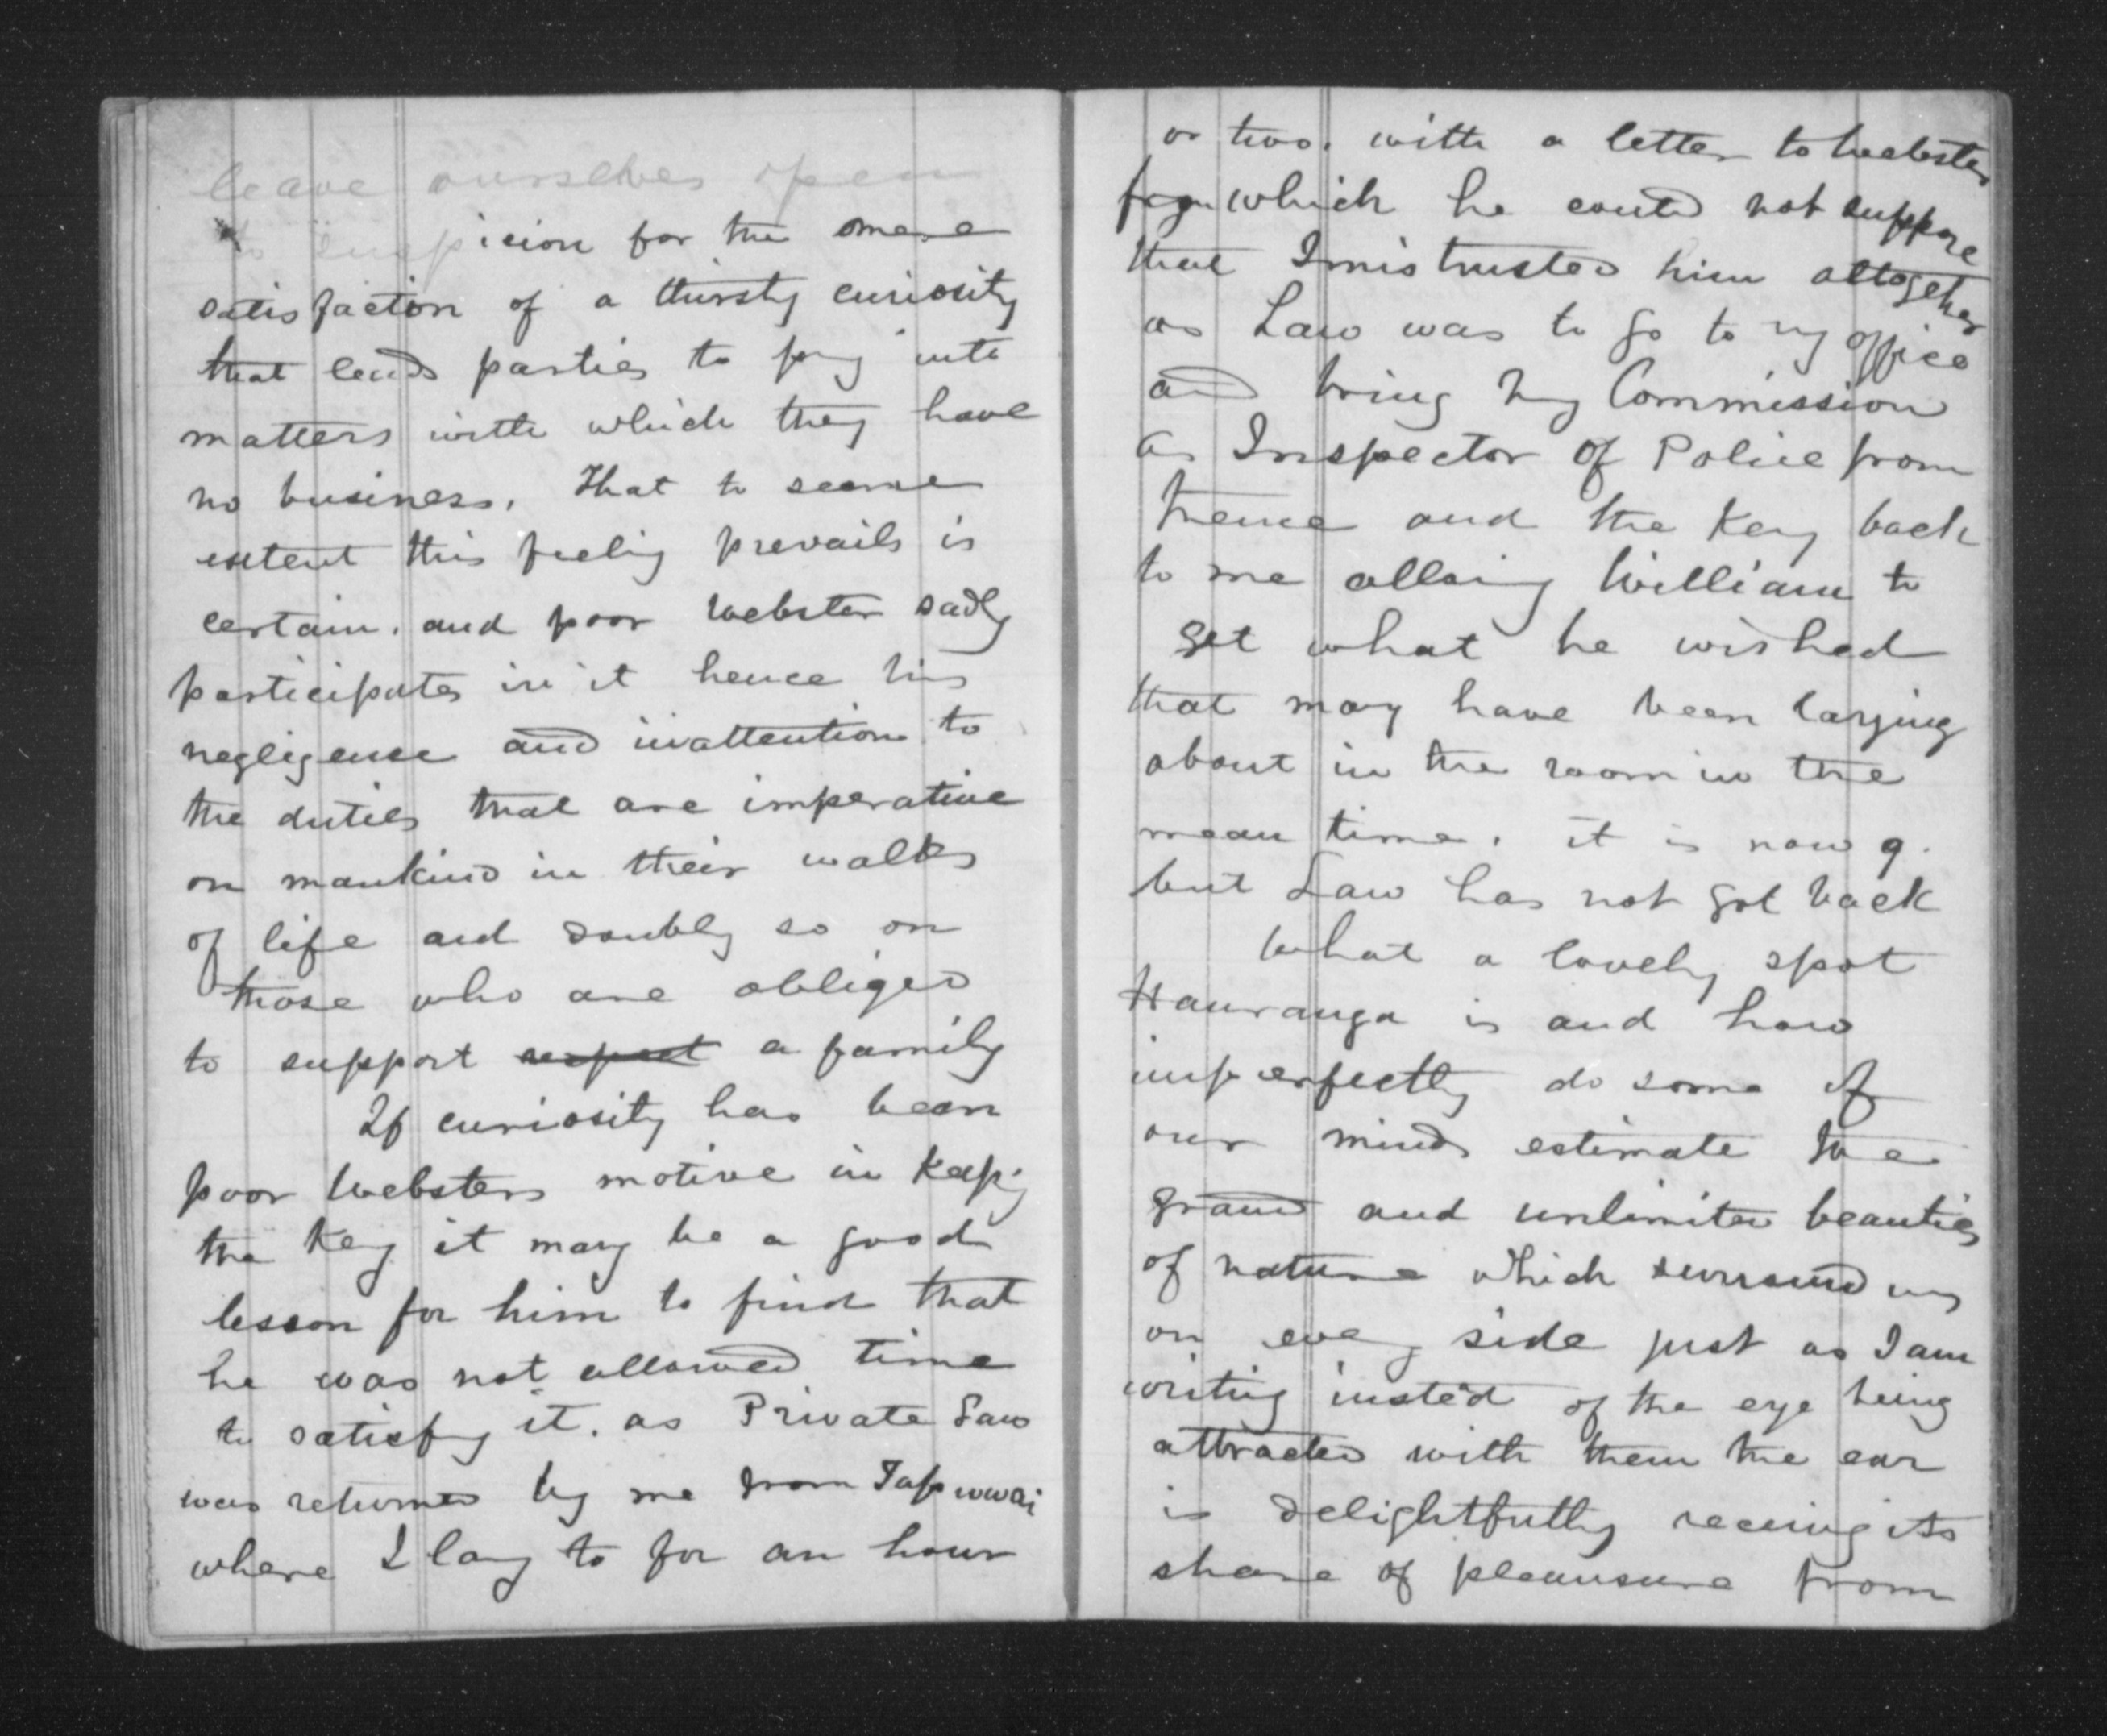 leave ourselves open
to suspicion for the mere
satisfaction of a thirsty curiosity
that leads parties to pry into
matters with which they have
no business. That to some
extent this feeling prevails is
certain. and poor Webster sadly
participates in it hence his
negligence and inattention to
the duties that are imperative
on mankind in their walks
of life and doubly so on
those who are obliged
to support respect a family
If curiosity has been
poor Websters motive in keeping
the key it may be a good
lesson for him to find that
he was not allowed time
to satisfy it. as Private Law
was returned by me from
where I lay to for an hour
or two. with a letter to Webster
from which he could not suppose
that I mistrusted him altogether
as Law was to go to my office
and bring my Commission
as Inspector of Police from
thence and the key back
to me allowing William to
get what he wished
that may have been laying
about in the room in the
mean time. it is now 9.
but Law has not got back
What a lovely spot
Hauranga is and how
imperfectly do some of
our minds estimate the
grand and unlimited beauties
of nature which surround us
on every side just as I am
writing insted of the eye being
attracted with them the ear
is delightfully receiving its
share of pleausure from